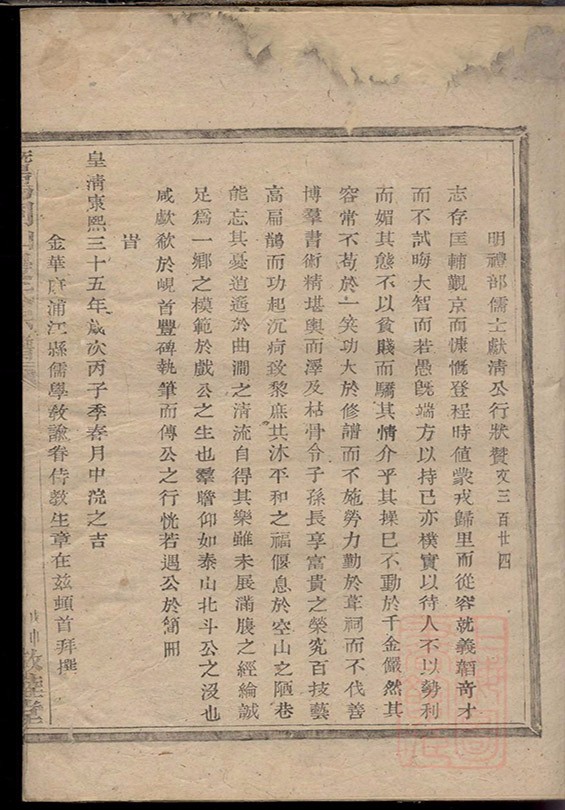 明禮部儒士獻清公行狀贊文三百廿四
志存匡輔觀京而慷慨登程時值蒙戎歸里而從容就義韜奇才
而不試晦大智而若愚旣端方以持已亦樸實以待人不以勢利
而媚其態不以貧賤而驕其情介乎其操巳不動於千金儼然其
容常不苟於一笑功大於修譜而不施勞力勤於葺祠而不伐善
博羣書術精堪輿而澤及枯骨令子孫長享富貴之榮究百技藝
高扁鵲而功起沉疴致黎庶共沐平和之福偃息於空山之陋巷
能忘其憂逍遥於曲澗之清流自得其樂雖未展滿腹之經綸誠
足爲一鄉之模範於戲公之生也羣瞻仰如泰山北斗公之沒也
咸歔欷於峴首豐碑執筆而傳公之行恍若遇公於簡冊
旹
皇清康熙三十五年歲次丙子季春月中浣之吉
金華府浦江縣儒學敎諭眷侍敎生章在兹頓首拜撰
敦睦堂